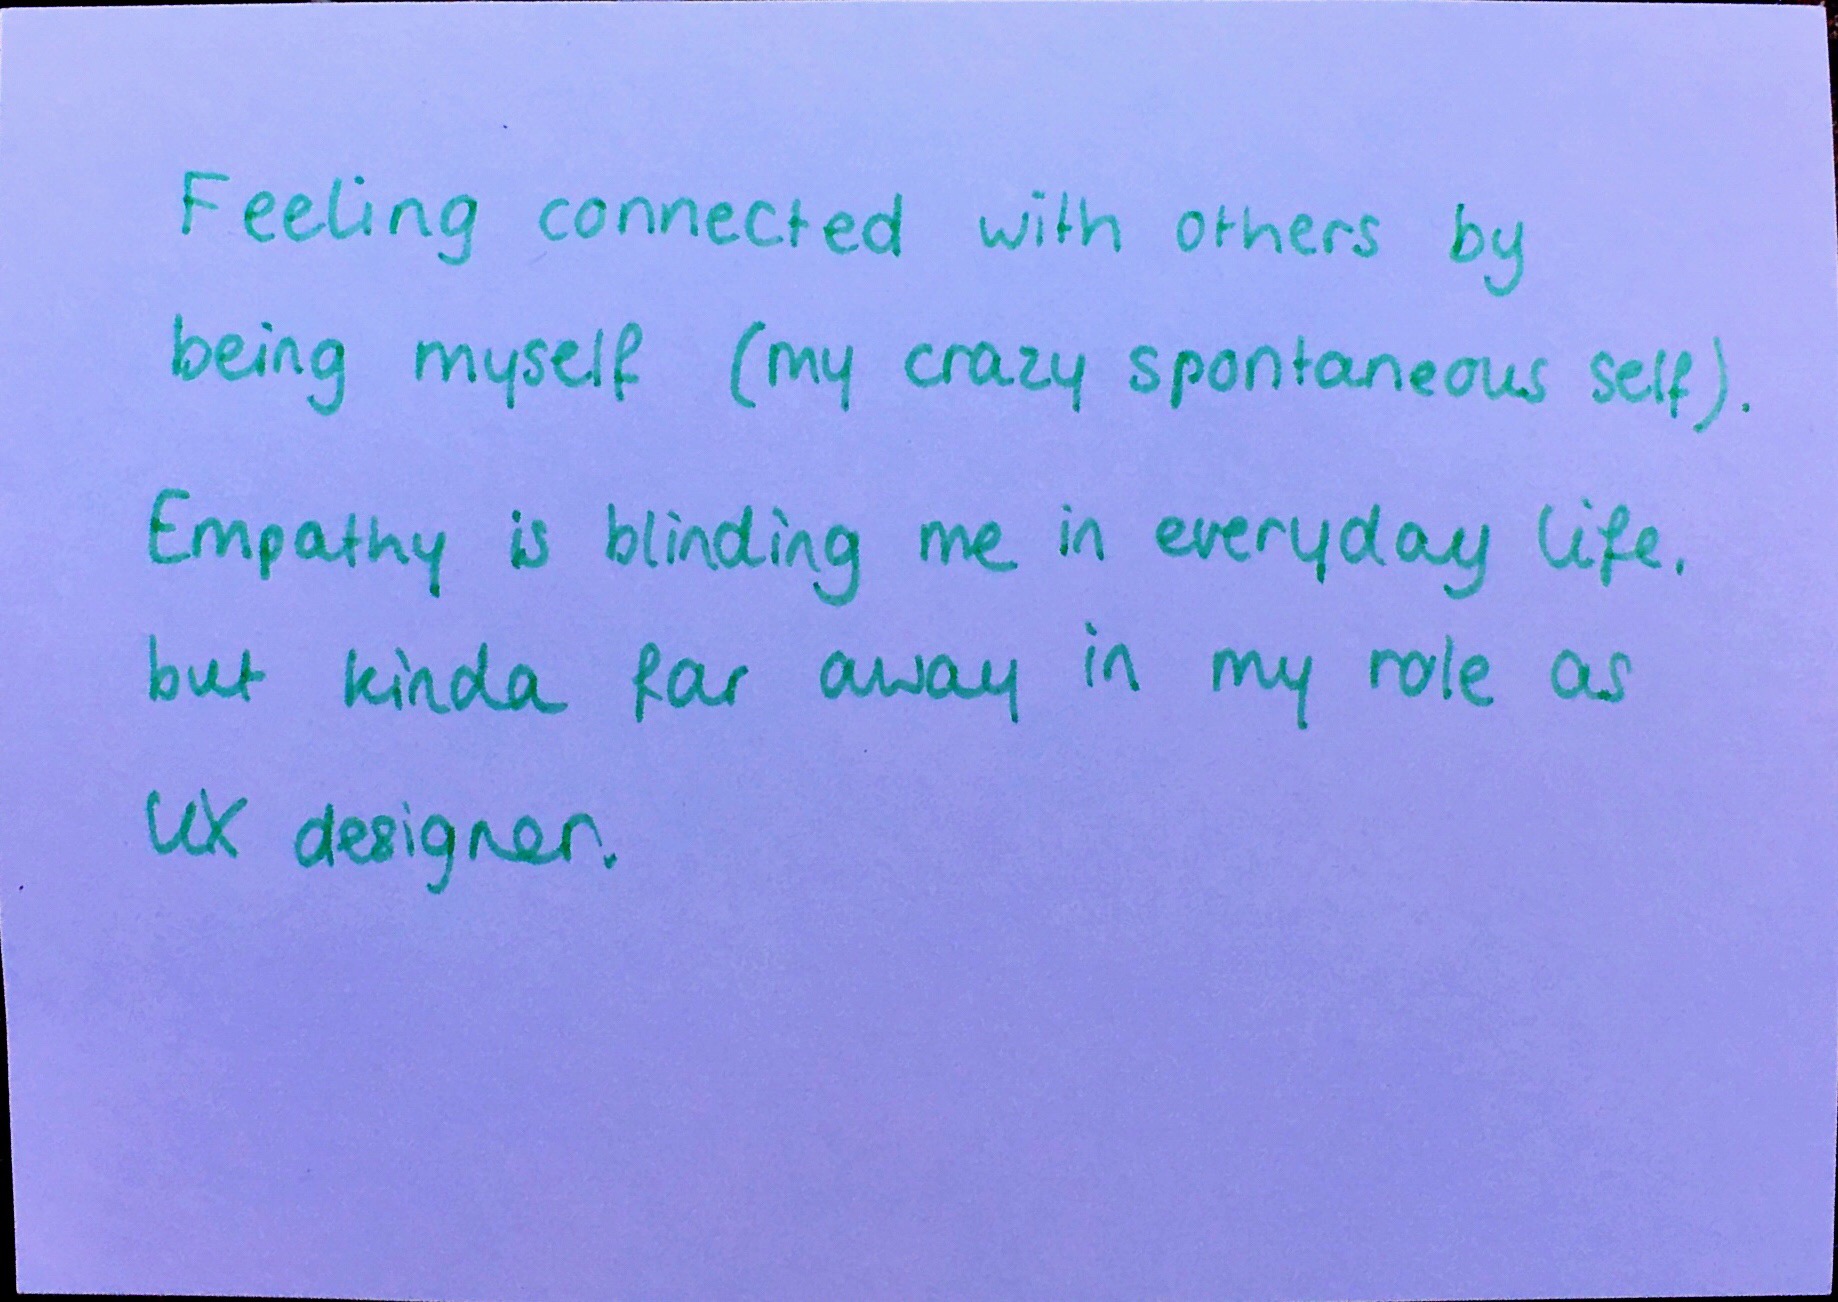 Feeling connected with others by
being myself (my crazy spontaneous self).
Empathy is blinding me in everyday life.
but kinda far away in my role as
UX designer.